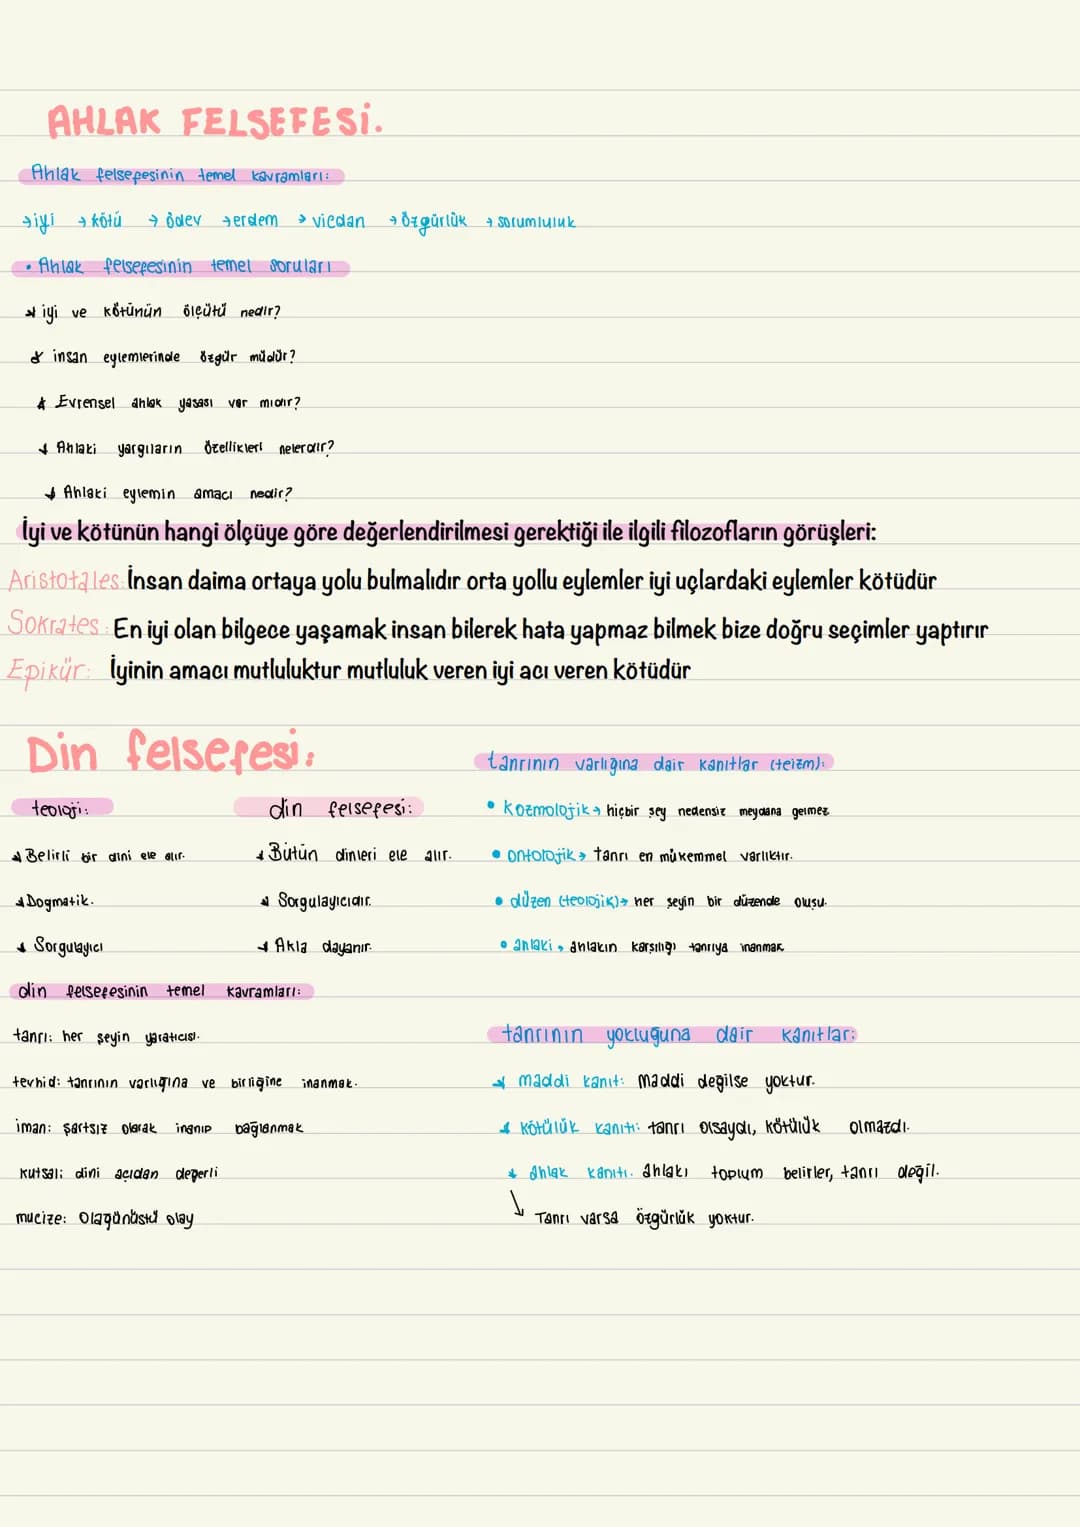 AHLAK FELSEFESİ.
Ahlak felsefesinin temel kavramları:
→iyi →kötü →ödev →erdem →vicdan →özgürlük →sorumluluk
• Ahlak felsefesinin temel soruları
iyi ve kötünün ölçütü nedir?
insan eylemlerinde özgür müdür?
Evrensel ahlak yasası var mıdır?
Ahlaki yargıların özellikleri nelerdir?
Ahlaki eylemin amacı nedir?
İyi ve kötünün hangi ölçüye göre değerlendirilmesi gerektiği ile ilgili filozofların görüşleri:
Aristotales: İnsan daima ortaya yolu bulmalıdır orta yollu eylemler iyi uçlardaki eylemler kötüdür
Sokrates: En iyi olan bilgece yaşamak insan bilerek hata yapmaz bilmek bize doğru seçimler yaptırır
Epikür: İyinin amacı mutluluktur mutluluk veren iyi acı veren kötüdür
Din felsefesi:
teoloji:
Belirli bir dini ele alır.
Dogmatik.
Sorgulayıcı
din felsefesi:
Bütün dinleri ele alır.
Sorgulayıcıdır.
Akla dayanır.
din felsefesinin temel kavramları:
tanrı: her şeyin yaratıcısı.
tevhid: tanrının varlığına ve birliğine inanmak.
iman: şartsız olarak inanıp bağlanmak
kutsal: dini açıdan değerli
mucize: Olağanüstü olay
tanrının varlığına dair kanıtlar (teizm):
• kozmolojik→ hiçbir şey nedensiz meydana gelmez
• ontolojik→ tanrı en mükemmel varlıktır.
• düzen (teolojik)→ her şeyin bir düzende oluşu.
• ahlaki→ ahlakın karşılığı tanrıya inanmak
tanrının yokluğuna dair kanıtlar:
maddi kanıt: Maddi değilse yoktur.
kötülük kanıtı: tanrı olsaydı, kötülük olmazdı.
ahlak kanıtı. ahlakı toplum belirler, tanrı değil.
↓ Tanrı varsa özgürlük yoktur.